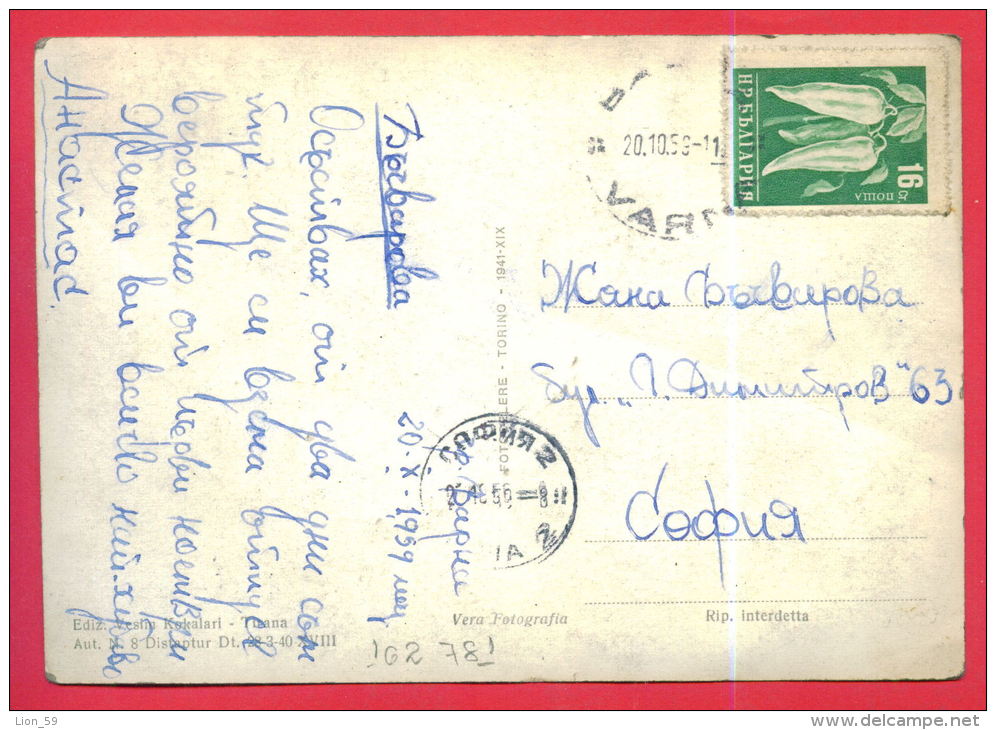 Бъчварова
Осъмвах, от два дни съм
тук. Ще си взема отпуск
вероятно от първи ноември
Желая ви всичко най-хубаво
Анастас.
20.X-1959 год
Варна
Жана Бъчварова
бул. „Г. Димитров" 63
София
НР БЪЛГАРИЯ
16 СТ ПОЩА
20.10.59-11
VARN
СОФИЯ 2
FOTOCELERE - TORINO - 1941-XIX
Ediz. Vesim Kokalari - Tirana
Aut. N. 8 Distaptur Dt. 28-3-40 XVIII
Vera Fotografia
Rip. interdetta
162 781
Lion_59
www.delcampe.net